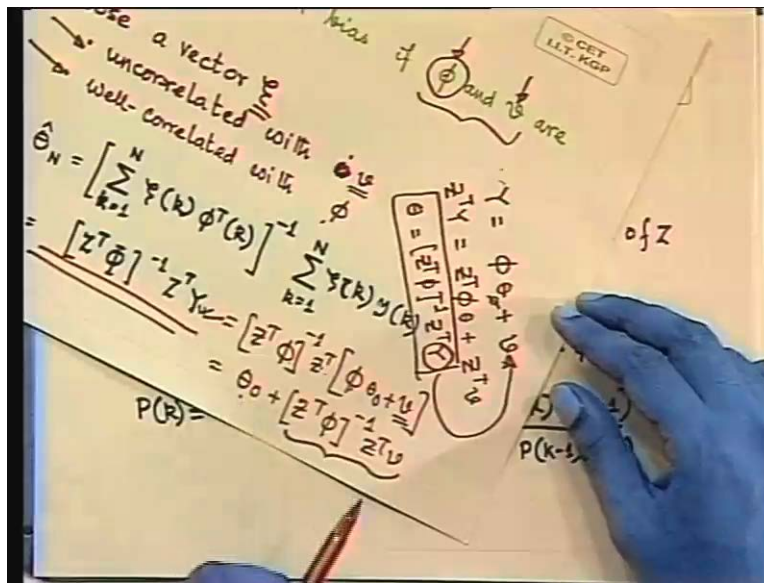 bias if ϕ and v are
© CET
I.I.T. KGP
a vector ξ
uncorrelated with v
well-correlated with ϕ
θ̂_N = [∑_{k=1}^{N} ξ(k) ϕ^T(k)]^{-1} ∑_{k=1}^{N} ξ(k) y(k)
= [Z^T Φ]^{-1} Z^T Y = [Z^T ϕ]^{-1} Z^T [ϕ θ_0 + v]
= θ_0 + [Z^T ϕ]^{-1} Z^T v
Y = ϕ θ + v
Z^T Y = Z^T ϕ θ + Z^T v
θ = [Z^T ϕ]^{-1} Z^T Y
of Z
P(k) =
P(k-1)